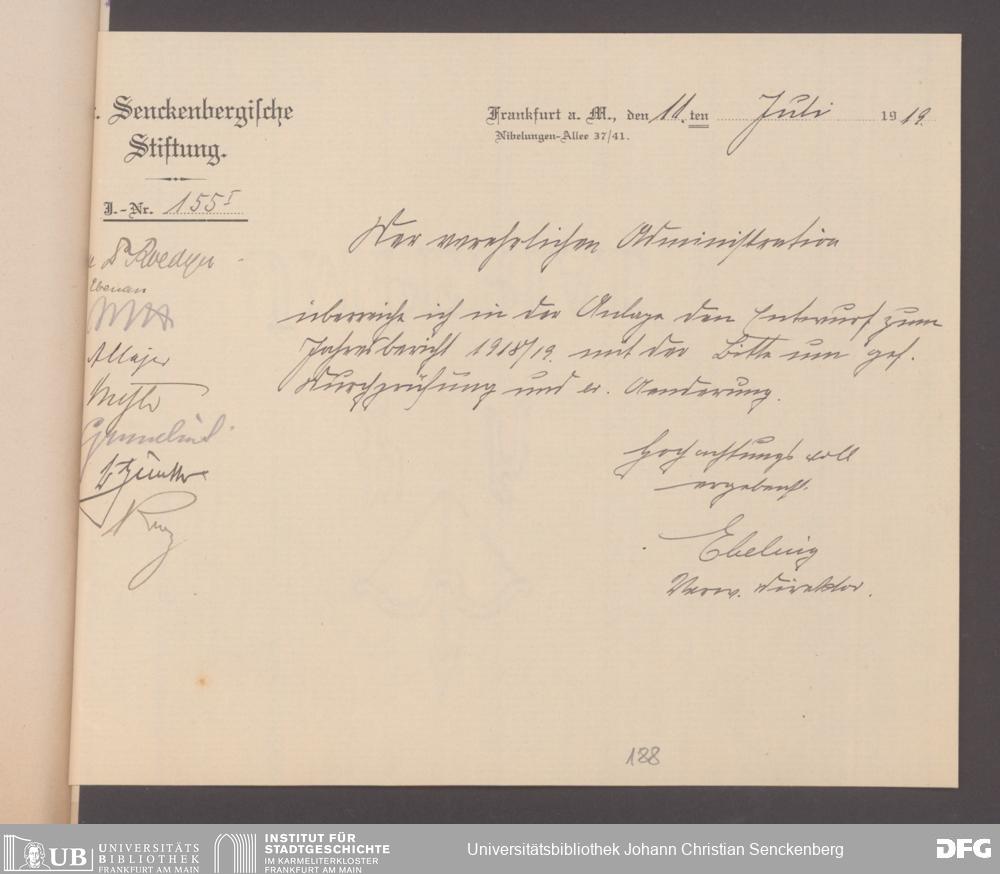 r. Senckenbergische
Stiftung.
J.-Nr. 155 I
Frankfurt a. M., den 11. ten Juli 1919.
Nibelungen-Allee 37/41.
Dr Roediger
Ebenau
Der verehrlichen Administration
überreiche ich in der Anlage den Entwurf zum
Jahresbericht 1918/19. mit der Bitte um gef.
Durchprüfung und ev. Aenderung.
Hochachtungsvoll
ergebenst.
Ebeling
Verw. Direktor.
188
UB UNIVERSITÄTS
BIBLIOTHEK
FRANKFURT AM MAIN
INSTITUT FÜR
STADTGESCHICHTE
IM KARMELITERKLOSTER
FRANKFURT AM MAIN
Universitätsbibliothek Johann Christian Senckenberg
DFG